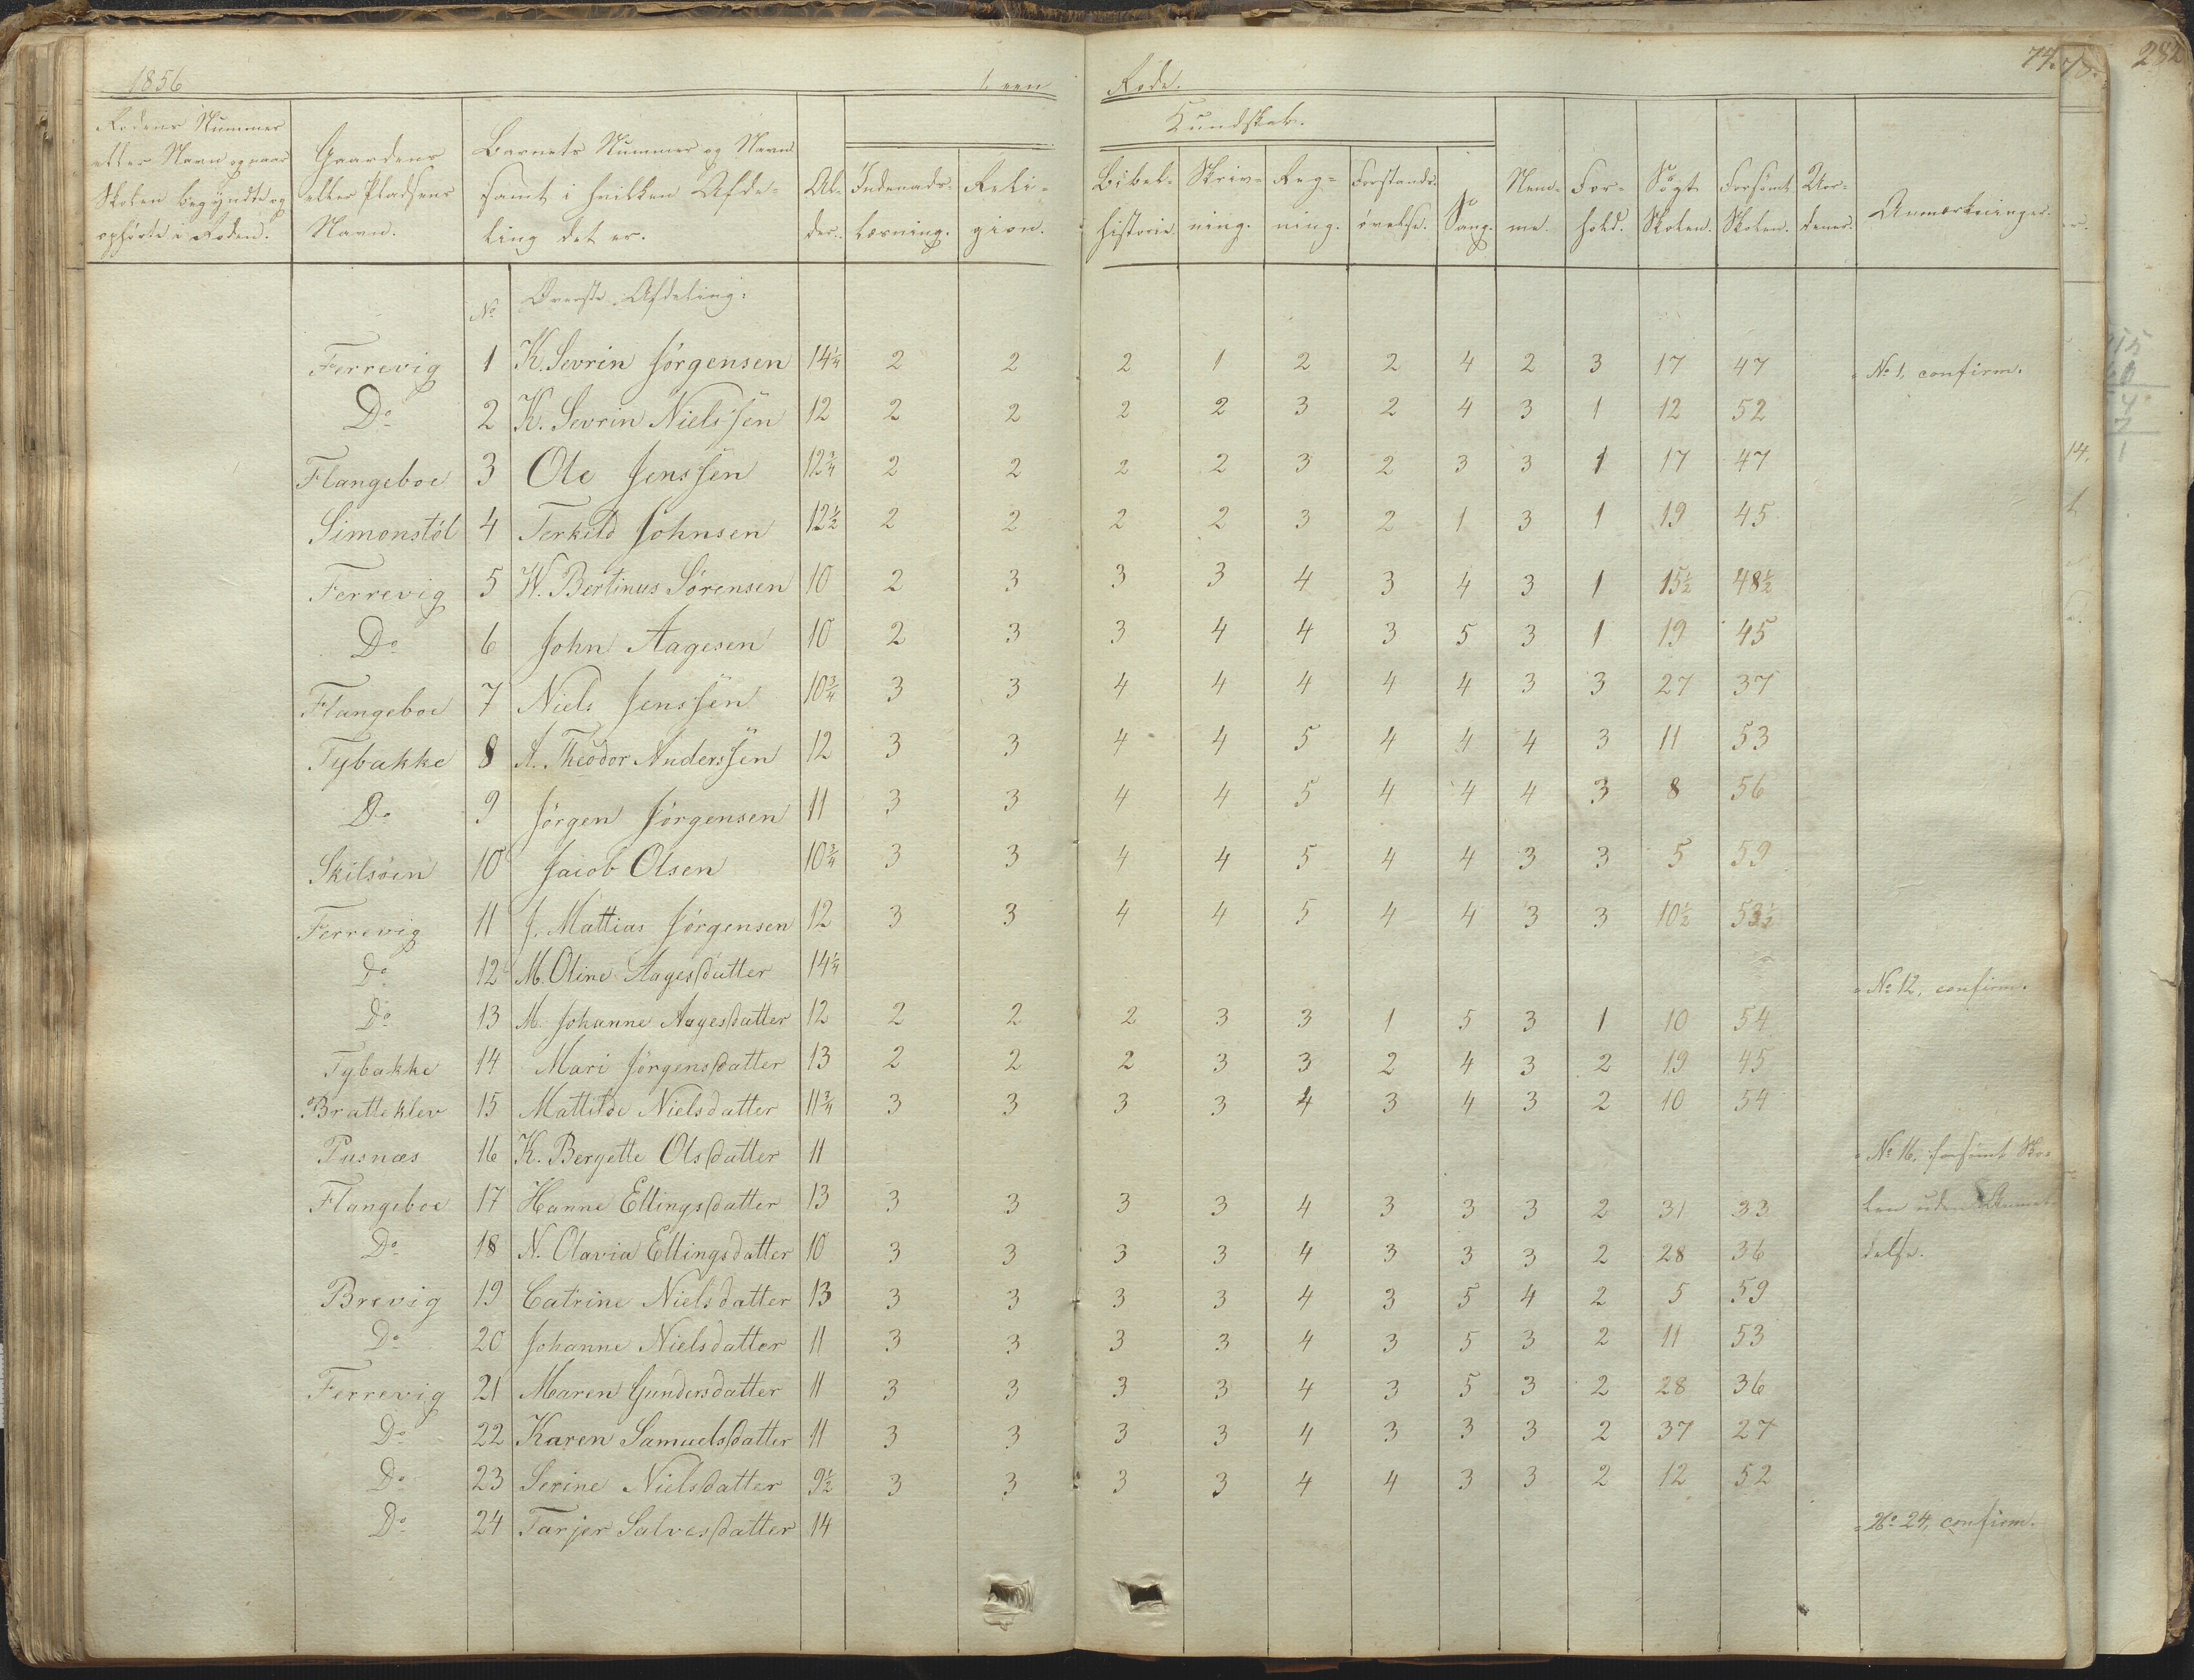 1856 1. een Rode. 74. 78. 282
Rodens Nummer eller Navn og naar Skolen begyndte og ophörte i Roden. | Gaardens eller Pladsens Navn. | Barnets Nummer og Navn samt i hvilken Afdeling det er. | Alder. | Indenadslæsning. | Religion. | Kundskab. | Bibelhistorie | Skrivning. | Regning. | Forstandsøvelse. | Sang. | Nemme. | Forhold. | Søgt Skolen. | Forsömt Skolen. | Uordener. | Anmærkninger.
No Øverste Afdeling:
Ferrevig 1 K. Sevrin Jörgensen 14 1/4 2 2 2 1 2 2 4 2 3 17 47 No 1, confirm.
Do 2 K. Sevrin Nielssen 12 2 2 2 2 3 2 4 3 1 12 52
Flangeboe 3 Ole Jenssen 12 3/4 2 2 2 2 3 2 3 3 1 17 47
Simonstöl 4 Terkild Johnsen 12 1/2 2 2 2 2 3 2 1 3 1 19 45
Ferrevig 5 W. Bertinus Sörensen 10 2 3 3 3 4 3 4 3 1 15 1/2 48 1/2
Do 6 John Aagesen 10 2 3 3 4 4 3 5 3 1 19 45
Flangeboe 7 Niels Jenssen 10 3/4 3 3 4 4 4 4 4 3 3 27 37
Tybakke 8 A. Theodor Anderssen 12 3 3 4 4 5 4 4 4 3 11 53
Do 9 Jörgen Jörgensen 11 3 3 4 4 5 4 4 4 3 8 56
Skilsöen 10 Jaiob Olsen 10 3/4 3 3 4 4 5 4 4 3 3 5 59
Ferrevig 11 J. Mattias Jörgensen 12 3 3 4 4 5 4 4 3 3 10 1/2 53 1/2
Do 12 M. Oline Aagesdatter 14 1/4 No 12, confirm.
Do 13 M. Johanne Aagesdatter 12 2 2 2 3 3 1 5 3 1 10 54
Tybakke 14 Mari Jörgensdatter 13 2 2 2 3 3 2 4 3 2 19 45
Bratteklev 15 Mattilde Nielsdatter 11 3/4 3 3 3 3 4 3 4 3 2 10 54
Pusnæs 16 K. Bergette Olsdatter 11 No 16, forsömt Sko-
Flangeboe 17 Hanne Ellingsdatter 13 3 3 3 3 4 3 3 3 2 31 33 len uden Anmel-
Do 18 N. Olavia Ellingsdatter 10 3 3 3 3 4 3 3 3 2 28 36 delse.
Brevig 19 Catrine Nielsdatter 13 3 3 3 3 4 3 5 4 2 5 59
Do 20 Johanne Nielsdatter 11 3 3 3 3 4 3 5 3 2 11 53
Ferrevig 21 Maren Gundersdatter 11 3 3 3 3 4 3 5 3 2 28 36
Do 22 Karen Samuelsdatter 11 3 3 3 3 4 3 3 3 2 37 27
Do 23 Serine Nielsdatter 9 1/2 3 3 3 3 4 4 3 3 2 12 52
Do 24 Tarjer Salvesdatter 14 No 24, confirm.